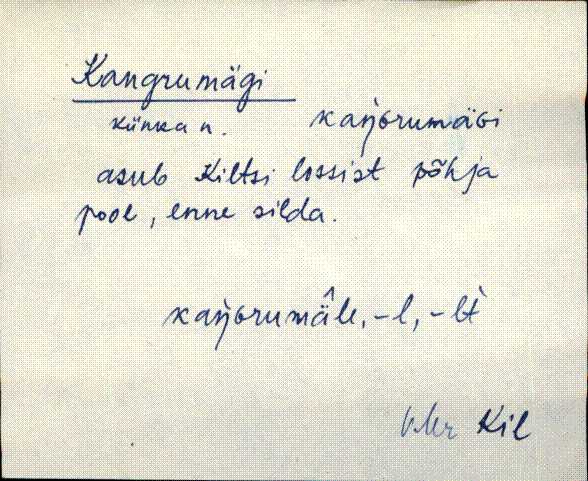 Kangrumägi
künka n. kaŋGrumäGi
asub Kiltsi lossist põhja
pool, enne silda.
kaŋGrumä̂le, -l, -lt̀
VMr Kil